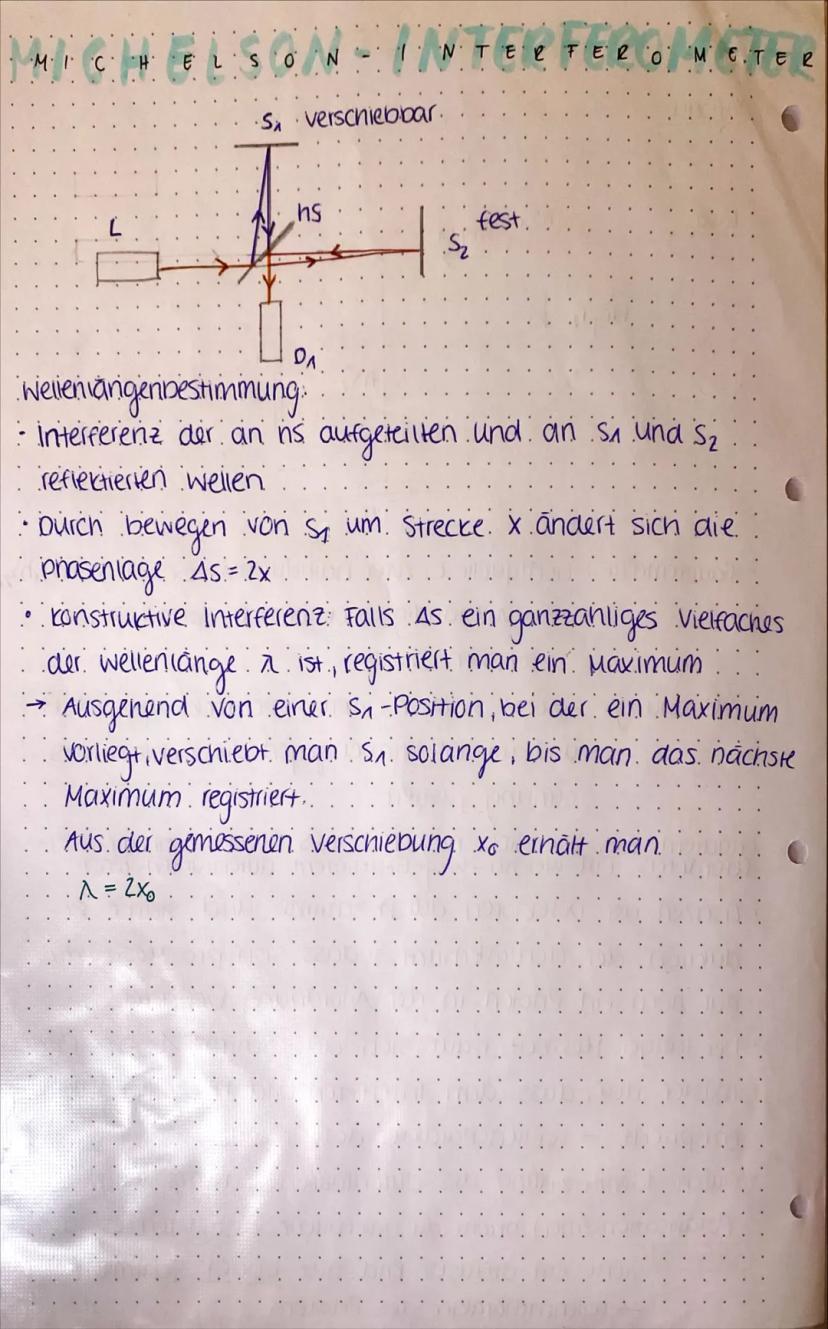 MICHELSON-INTERFEROMETER
S1 verschiebbar
hS
L
fest
S2
D1
Wellenlängenbestimmung:
· Interferenz der an hS aufgeteilten und an S1 und S2
reflektierten Wellen
· Durch bewegen von S1 um Strecke x ändert sich die
Phasenlage Δs = 2x
· Konstruktive Interferenz: Falls Δs ein ganzzahliges Vielfaches
der Wellenlänge λ ist, registriert man ein Maximum
→ Ausgehend von einer S1-Position, bei der ein Maximum
vorliegt, verschiebt man S1 solange, bis man das nächste
Maximum registriert.
Aus der gemessenen Verschiebung x0 erhält man
λ = 2x0